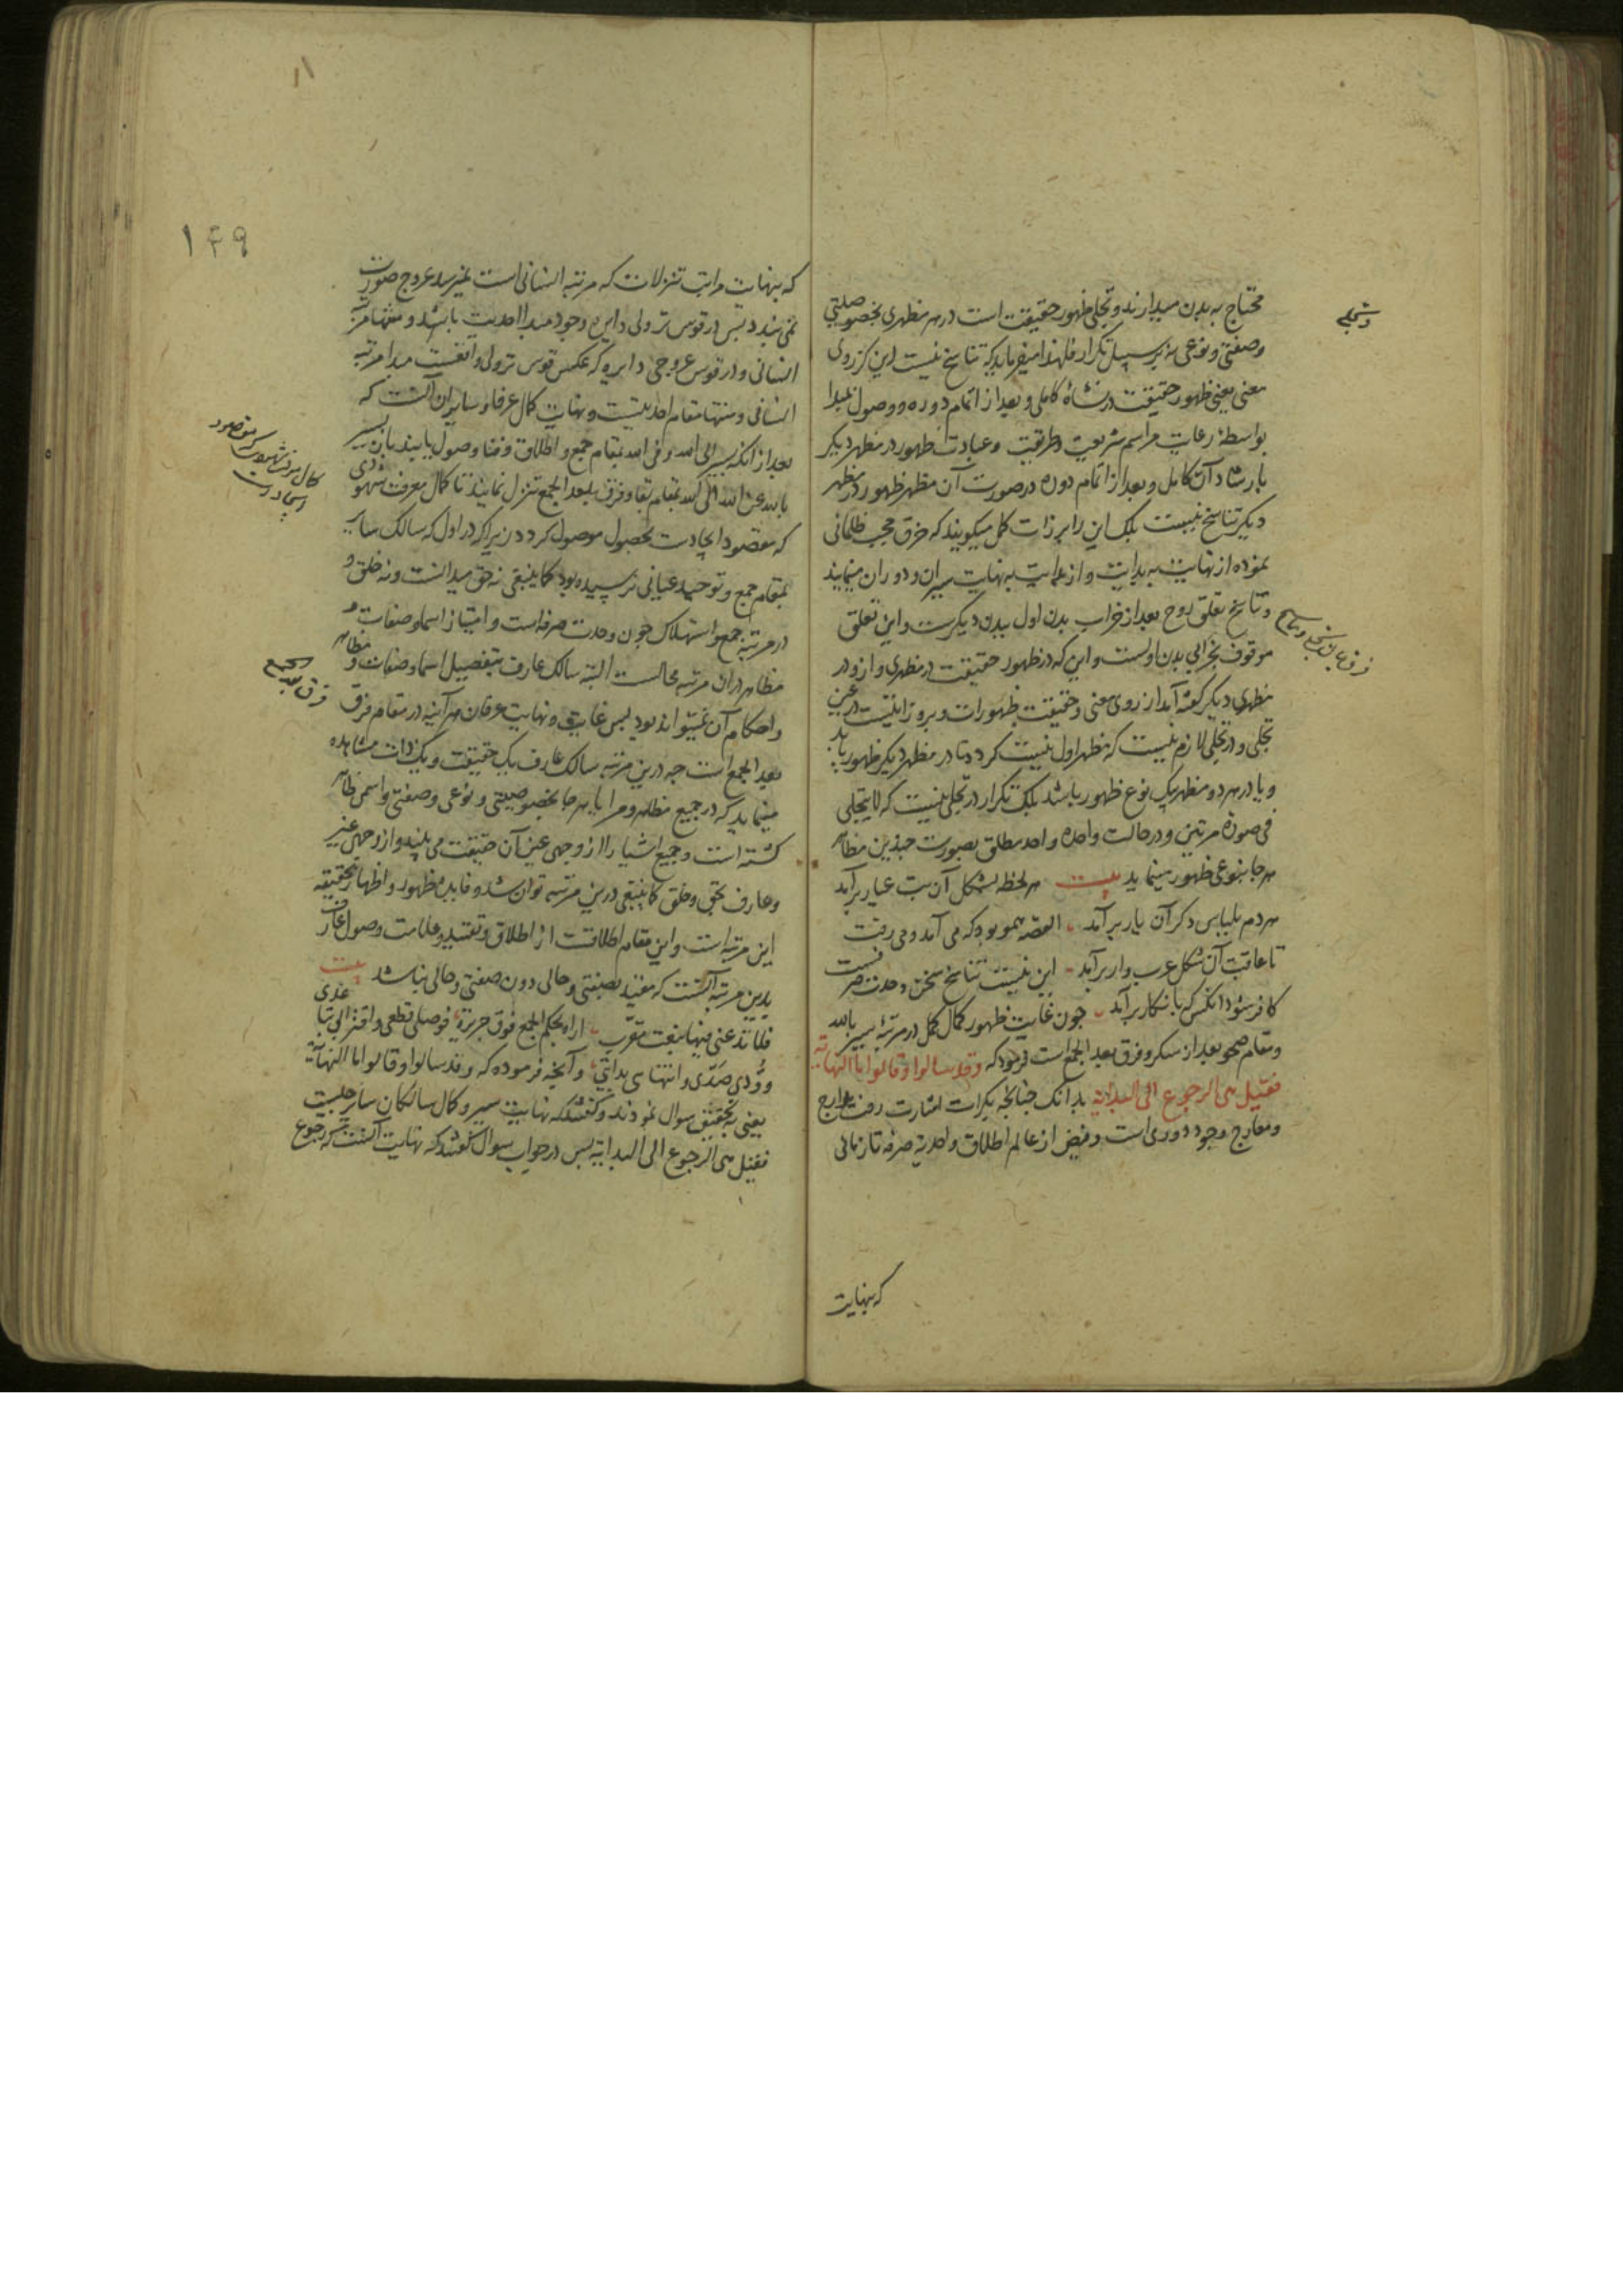 محتاج به بدن میدارند و تجلی ظهور حقیقت است در هر مظهری بخصوصیتی
و تجلی
وصفتی و نوعی نه بر سبیل تکرار فلهذا میفرماید که تناسخ نیست این کز روی
معنی یعنی ظهور حقیقت در نشاة کاملی و بعد از اتمام دوره و وصول بمبدا
بواسطه رعایت مراسم شریعت و طریقت و عبادت ظهور در مظهر دیگر
بارشاد آن کامل و بعد از اتمام دوره در صورت آن مظهر ظهور در مظهر
دیگر تناسخ نیست بلک این را برزات کمل میکویند که خرق حجب ظلمانی
نموده از نهایت به بدایت و از بدایت به نهایت سیران و دوران مینمایند
و تناسخ تعلق روح بعد از خراب بدن اول ببدن دیکرست و این تعلق
فرق میان تجلی و تناسخ
موقوف بخرابی بدن اولست و این که در ظهور حقیقت در مظهری و ازو در
مظهری دیکر گفته آمد از روی معنی و حقیقت ظهورات و بروزاتیست در عین
تجلی و در تجلی لازم نیست که مظهر اول نیست کردد تا در مظهر دیکر ظهور یابد
و یا در هر دو مظهر یک نوع ظهور باشد بلک تکرار در تجلی نیست که لا یتجلی
فی صورة مرتین و در حالت واحده واحد مطلق بصورت چندین مظاهر
هر جا بنوعی ظهور مینماید بیت هر لحظه بشکل آن بت عیار برآمد
هر دم بلباس دکر آن یار برآمد القصه همو بود که می آمد و می رفت
تا عاقبت آن شکل عرب وار برآمد این نیست تناسخ سخن وحدت صرفست
کافر شود انکس که بانکار برآمد چون غایت ظهور کمال کمل در مرتبه سیر بالله
و مقام صحو بعد از سکر و فرق بعد الجمع است فرمود که وقد سالوا و قالوا ما النهایه
فقیل هی الرجوع الی البدایه بدانک چنانچه بکرات اشارت رفت مدارج
و معارج وجود دوری است و فیض از عالم اطلاق و احدیة صرفه تا زمانی
که بنهایت
۱۴۹
که بنهایت مراتب تنزلات که مرتبه انسانی است نمیرسد عروج صورت
نمی بندد پس در قوس نزولی دایره وجود مبدا احدیت باشد و منتها مرتبه
انسانی و در قوس عروجی دایره که عکس قوس نزولی واقعست مبدا مرتبه
انسانی و منتها مقام احدیتست و نهایت کمال عرفا و سایران آنست که
بعد از انکه بسیر الی الله و فی الله بمقام جمع و اطلاق و فنا وصول یابند باز بسیر
بالله عن الله الی الله بمقام بقا و فرق بعد الجمع تنزل نمایند تا کمال معرفت شهودی
که مقصود ایجادست بحصول موصول کردد زیرا که در اول که سالک سایر
بمقام جمع و توحید عیانی نرسیده بود کما ینبغی نه حق میدانست و نه خلق و
در مرتبه جمع و استهلاک چون وحدت صرفه است و امتیاز اسما و صفات و
مظاهر در آن مرتبه محالست البته سالک عارف بتفصیل اسما و صفات و مظاهر
و احکام آن نمیتواند بود پس غایت و نهایت عرفان هر آینه در مقام فرق
فرق بعد الجمع
بعد الجمع است چه درین مرتبه سالک عارف یک حقیقت و یک ذات مشاهده
مینماید که در جمیع مظاهر و مرایا بهر جا بخصوصیتی و نوعی و صفتی و اسمی ظاهر
کشته است و جمیع اشیا را از وجهی عین آن حقیقت می بیند و از وجهی غیر
و عارف بحق و خلق کما ینبغی درین مرتبه توان شد و فایده ظهور و اظهار بحقیقه
این مرتبه است و این مقام اطلاقست از اطلاق و تقیید و علامت وصول عارف
بدین مرتبه آنست که مقید بصفتی و حالی دون صفتی و حالی نباشد بیت
فلما تدعنی فیها بنعت مقرب اراه بحکم الجمع فرق جریرة فوصلی قطعی و اقترابی تباعدی
و ودی صدی و انتهای بدایتی و آنچه فرموده که وقد سالوا و قالوا ما النهایة
یعنی بتحقیق سوال نمودند و کفتند که نهایت سیر و کمال سالکان سایر چیست
فقیل هی الرجوع الی البدایة پس در جواب سوال کفتند که نهایت آنست که رجوع